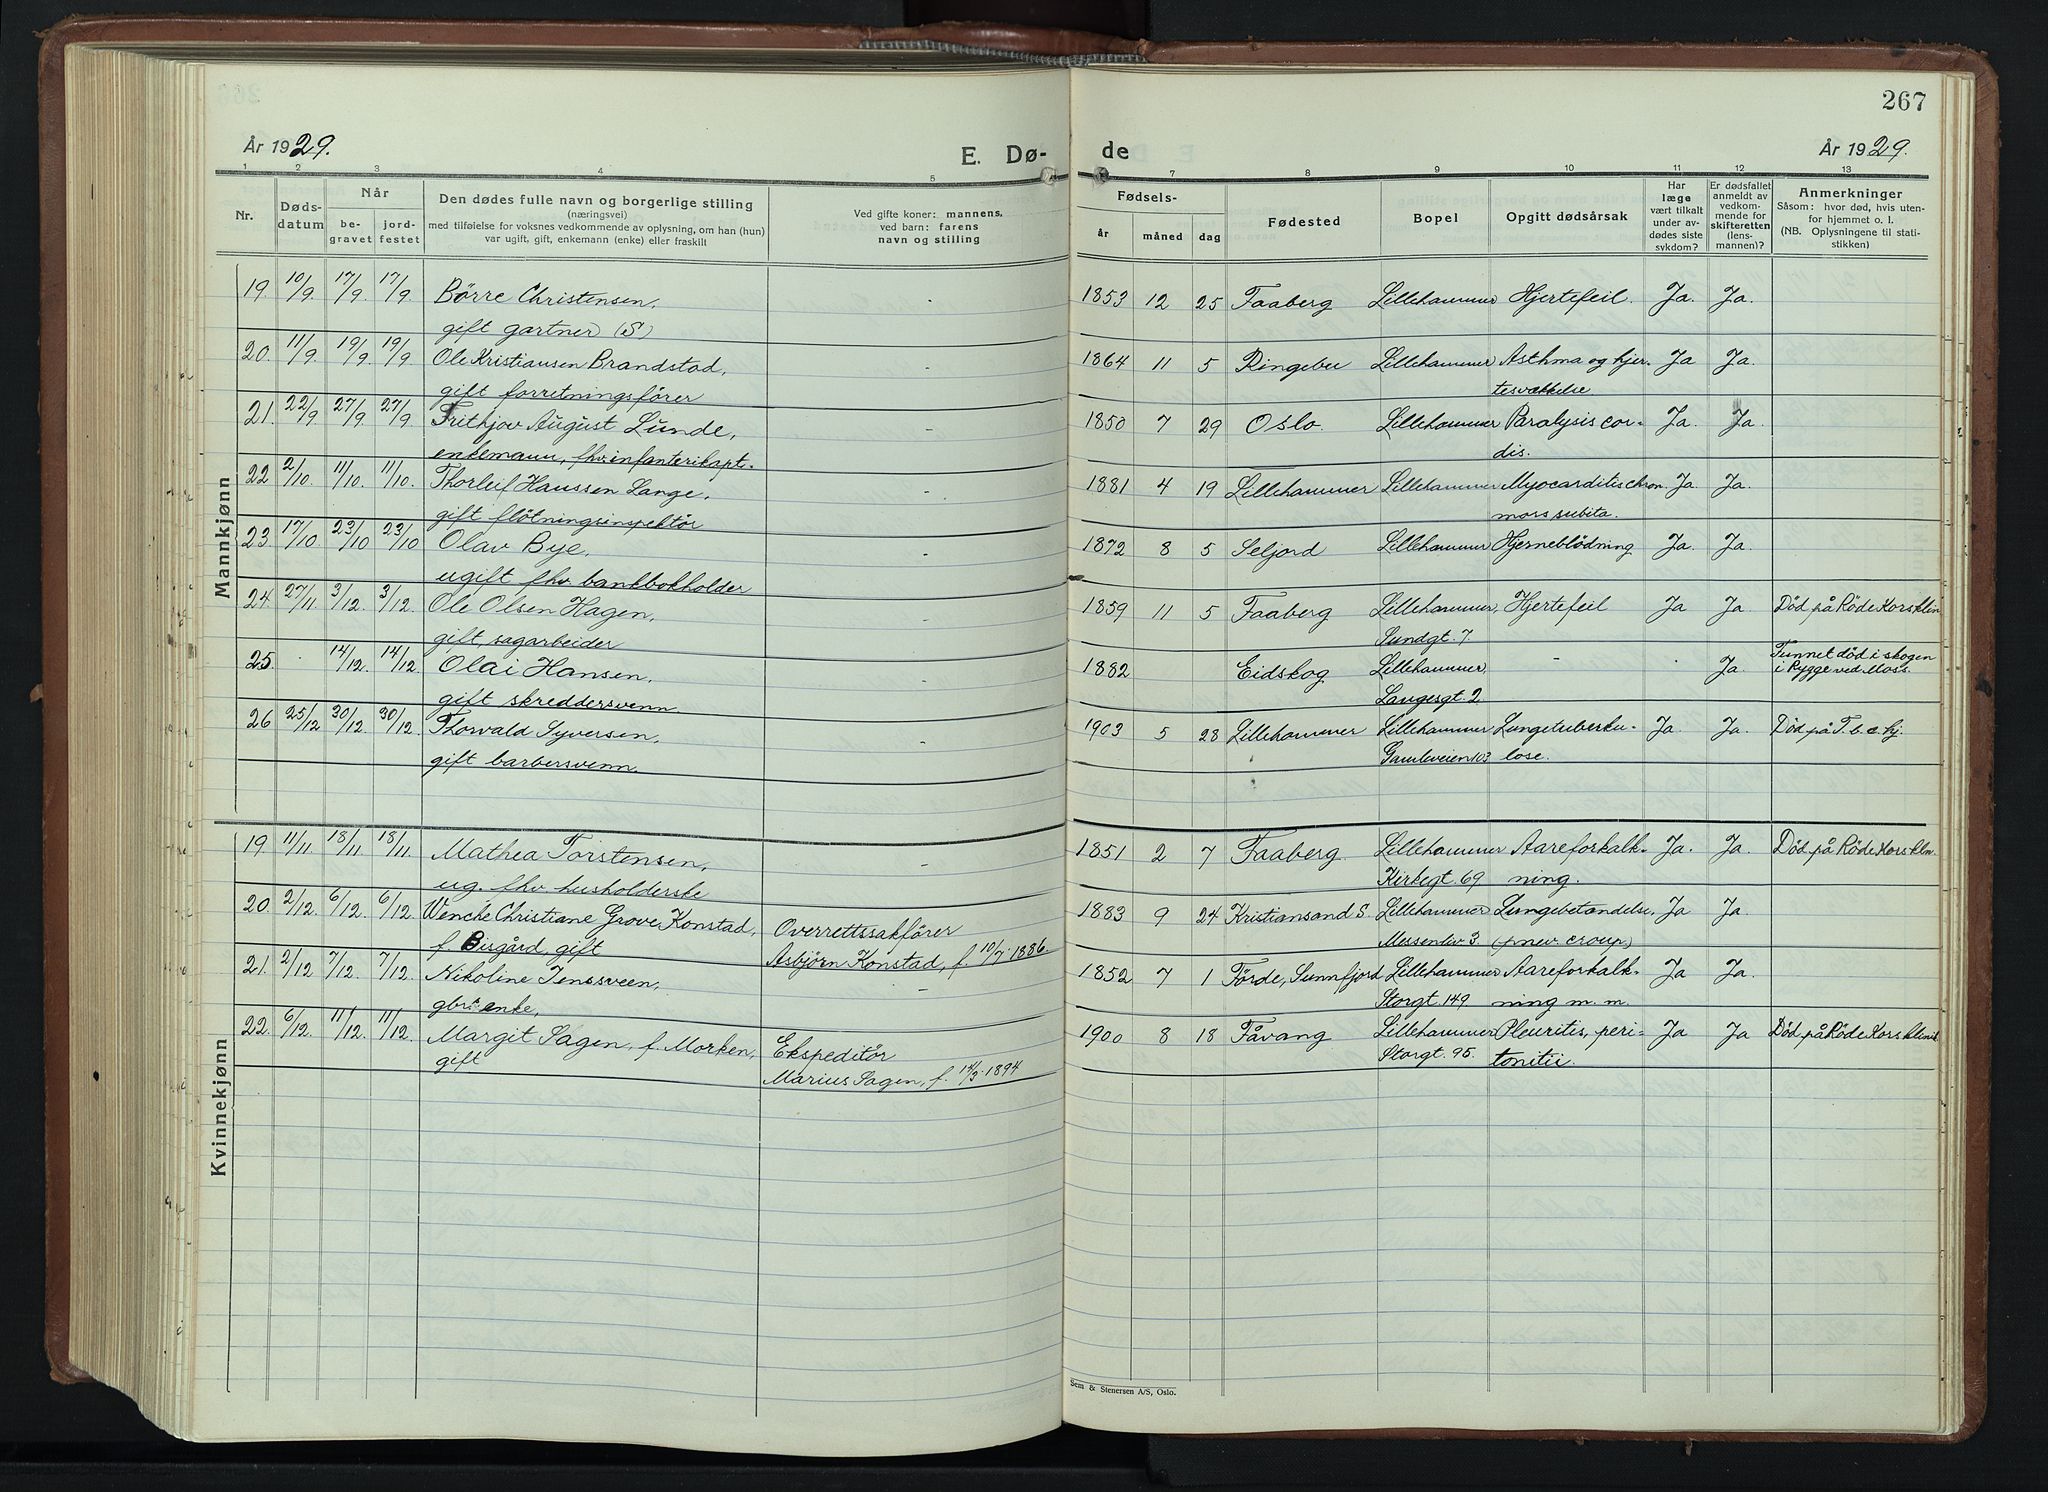 267
År 1929.
E. Dø-
de
År 1929.
1 2 3 4 5 7 8 9 10 11 12 13
Nr.
Døds-
datum
Når
be-
gravet
jord-
festet
Den dødes fulle navn og borgerlige stilling
(næringsvei)
med tilføielse for voksnes vedkommende av oplysning, om han (hun)
var ugift, gift, enkemann (enke) eller fraskilt
Ved gifte koner: mannens.
ved barn: farens
navn og stilling
Fødsels-
år måned dag
Fødested
Bopel
Opgitt dødsårsak
Har
læge
vært tilkalt
under av-
dødes siste
sykdom?
Er dødsfallet
anmeldt av
vedkom-
mende for
skifteretten
(lens-
mannen)?
Anmerkninger
Såsom: hvor død, hvis uten-
for hjemmet o. l.
(NB. Oplysningene til stati-
stikken)
Mannkjønn
19. 10/9. 17/9 17/9 Børre Christensen, - 1853 12 25 Faaberg Lillehammer Hjertefeil. Ja. Ja.
gift gartner (S)
20. 11/9. 19/9. 19/9 Ole Kristiansen Brandstad, - 1864 11 5 Ringebu Lillehammer Asthma og hjer- Ja Ja.
gift forretningsfører tesvækkelse
21. 22/9 27/9 27/9 Frithjov August Lunde, - 1850 7 29 Oslo. Lillehammer Paralysis cor- Ja. Ja.
enkemann, fhv. infanterikapt. dis.
22 2/10. 11/10. 11/10. Thorleif Hanssen Lange, - 1881 4 19 Lillehammer Lillehammer Myocarditis chron. Ja. Ja.
gift fløtningsinspektør mors subita.
23. 17/10 23/10 23/10 Olav Bye, - 1872 8 5 Seljord Lillehammer Hjerneblødning Ja. Ja.
ugift fhv. bankbokholder
24. 27/11 3/12. 3/12. Ole Olsen Hagen, - 1859 11 5 Faaberg Lillehammer, Hjertefeil Ja Ja. Død på Røde Kors klin
gift, sagarbeider Sundgt. 7.
25. 14/12. 14/12. Olai Hansen, - 1882 Eidskog Lillehammer, - - Ja Funnet død i skogen
i Rygge ved Moss.
gift skreddersvenn Langesgt. 2.
26 25/12 30/12. 30/12. Thorvald Syversen, - 1903 5 28 Lillehammer Lillehammer Lungetuberku- Ja. Ja. Død på T. b. c. hj.
gift barbersvenn. Gamleveien 103 lose.
Kvinnekjønn
19 11/11. 18/11 18/11 Mathea Torstensen, - 1851 2 7 Faaberg. Lillehammer Aareforkalk- Ja. Ja. Død på Røde Kors klin.
ug. fhv. husholderske Kirkegt. 69 ning.
20. 2/12. 6/12. 6/12. Wenche Christiane Grove Konstad, Overrettssakfører 1883 9 24 Kristiansand S. Lillehammer Lungebetændelse, Ja Ja.
f. Bisgård, gift Asbjørn Konstad, f. 10/7. 1886. Messenliv. 3. (pnev. croup.)
21. 2/12 7/12. 7/12. Nikoline Jenssveen, - 1852 7 1 Førde, Sunnfjord Lillehammer Aareforkalk- Ja Ja.
gbr. enke, Storgt. 149 ning m. m.
22. 6/12. 11/12. 11/12. Margit Sagen, f. Morken, Ekspeditør 1900 8 18 Fåvang Lillehammer Pleuritis, peri- Ja Ja Død på Røde Kors klinik
gift Marius Sagen, f. 14/3. 1894 Storgt. 95. tonitii.
Sem & Stenersen A/S, Oslo.